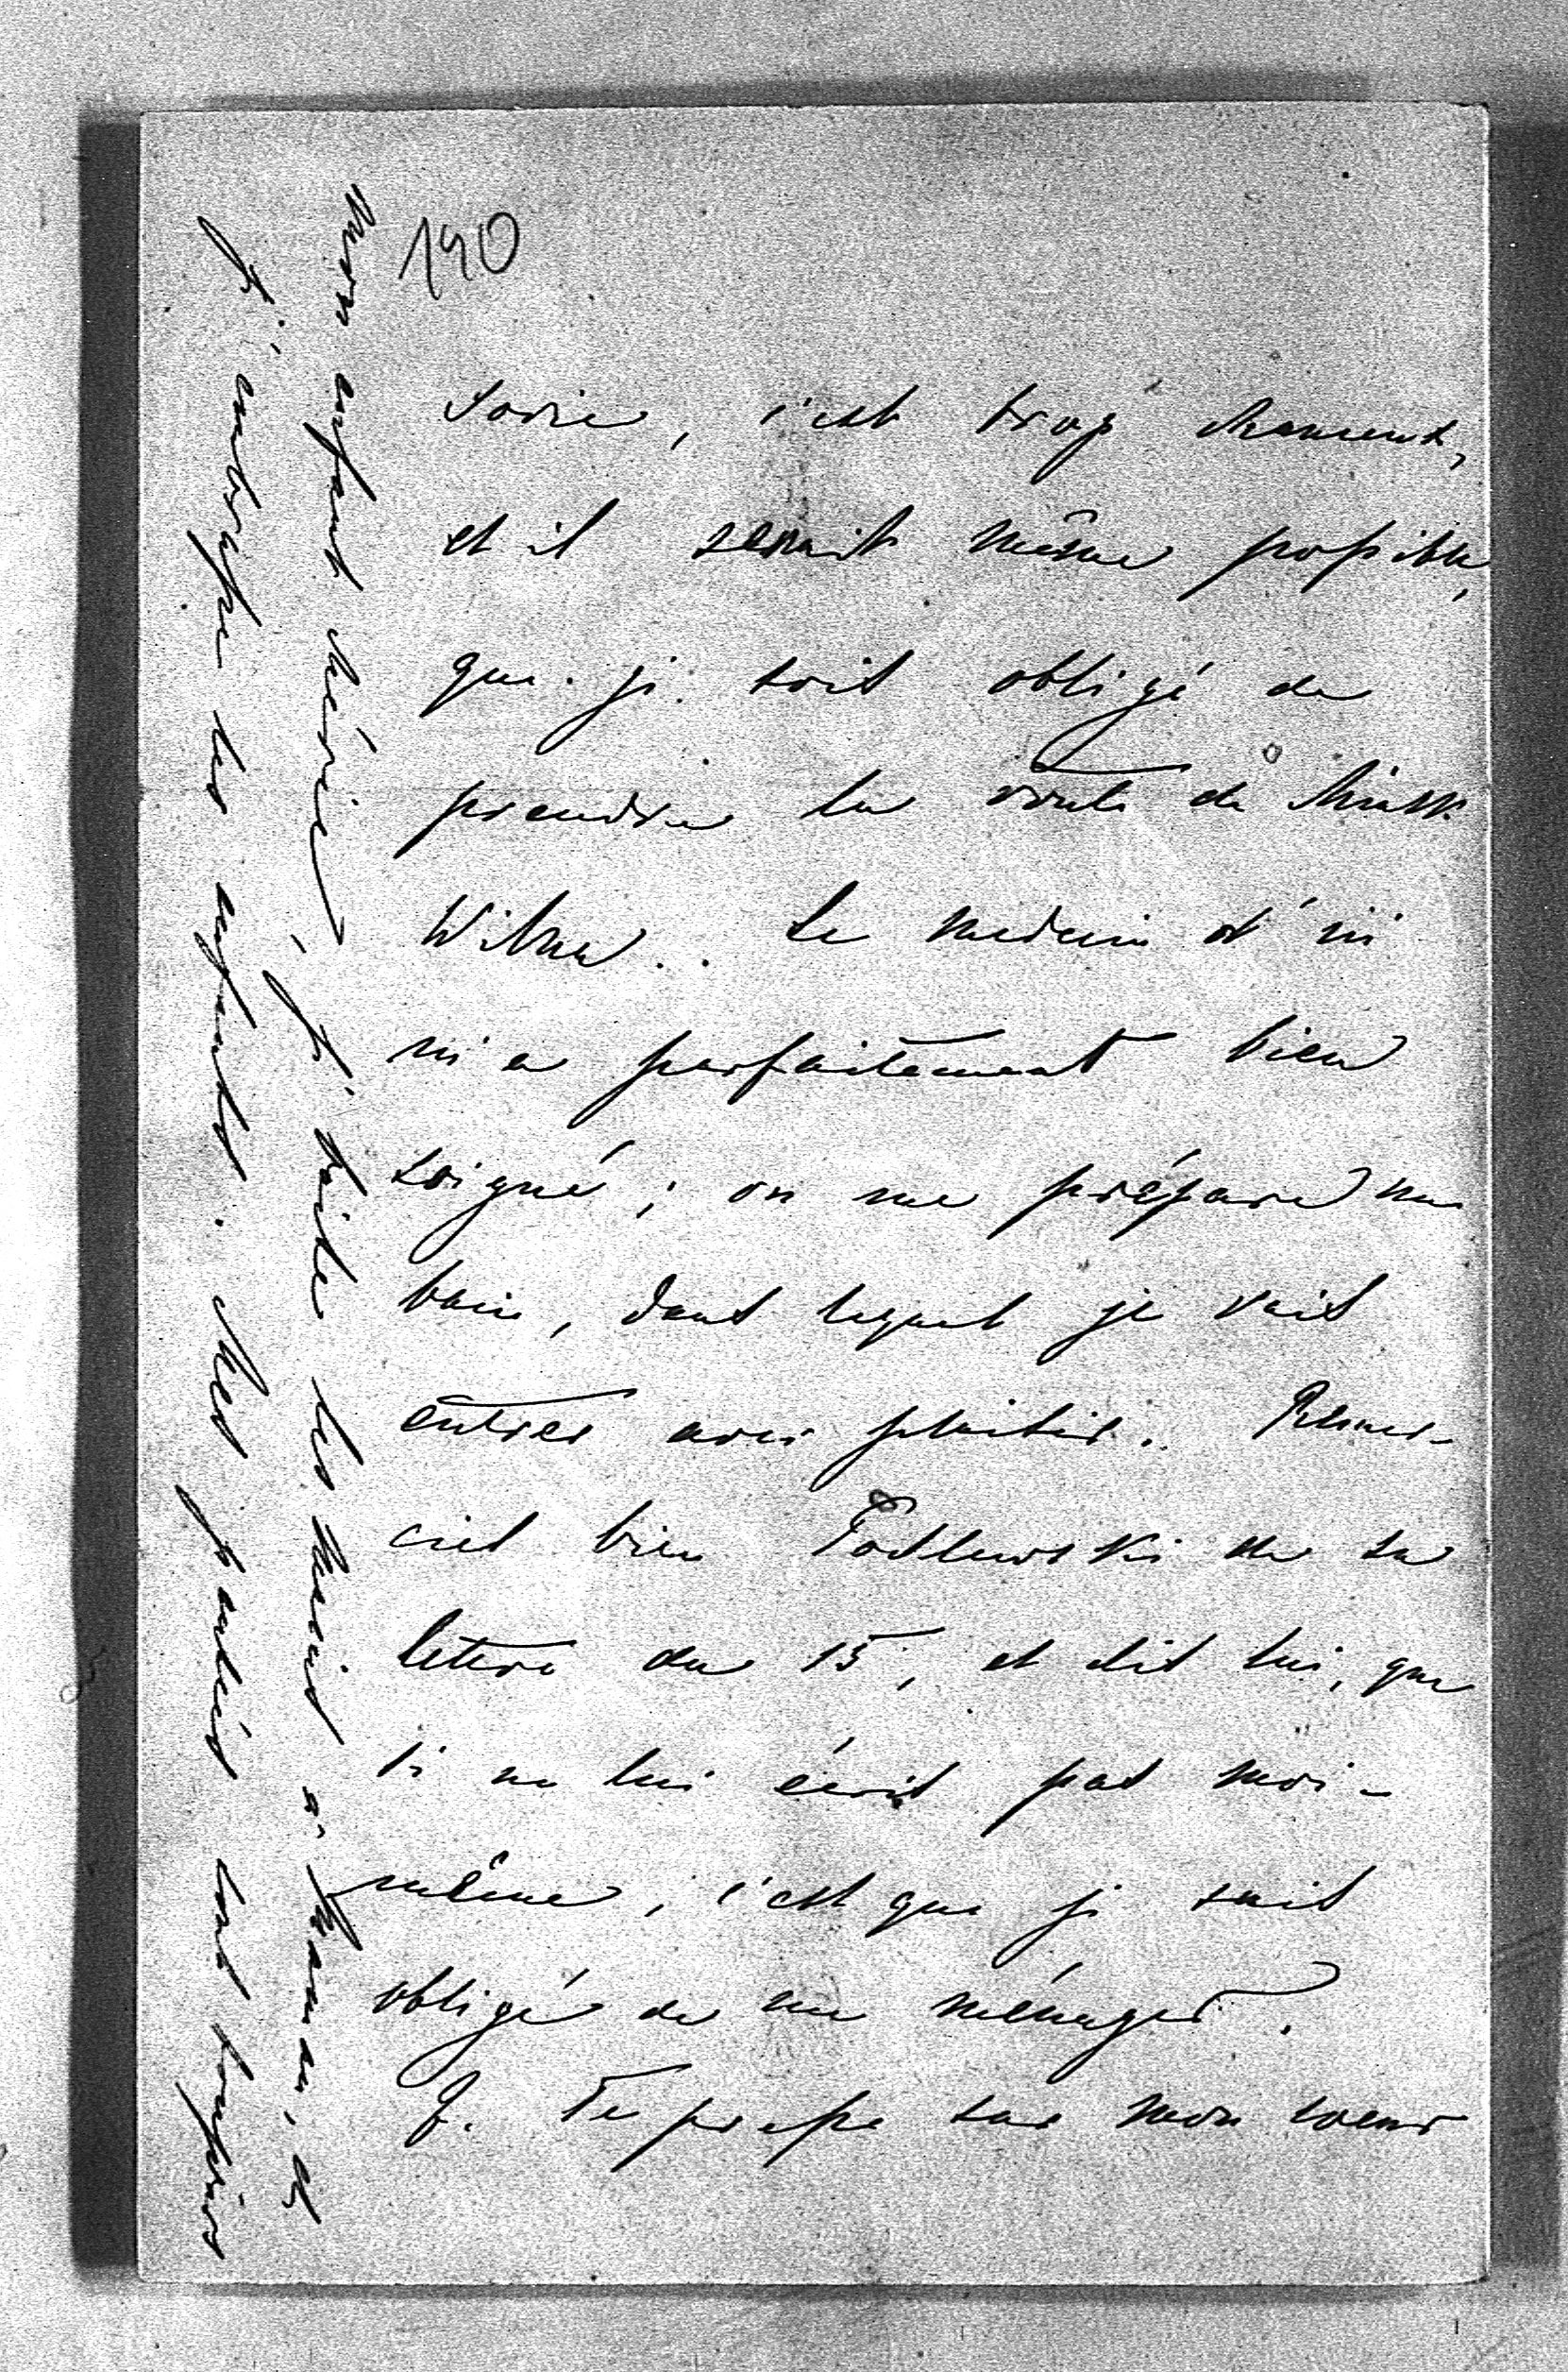 190
sorie, c'est trop chanceux,
et il serait même possible,
que je sois obligé de
prendre la route de Minsk.
Wilna.. Le medecin d'ici
m'a parfaitement bien
soigné; on me prépare un
bain, dans lequel je vais
entrer avec plaisir. Remer-
ciés bien Podlewski de sa
lettre du 15, et dis lui, que
si ne lui écris pas moi-
même, c'est que je suis
obligé de me ménager.
J. Te presse sur mon coeur
mon enfant chérie, je baise les mains à Maman, et
j'embrasse les enfants. Mes jambes sont toujours